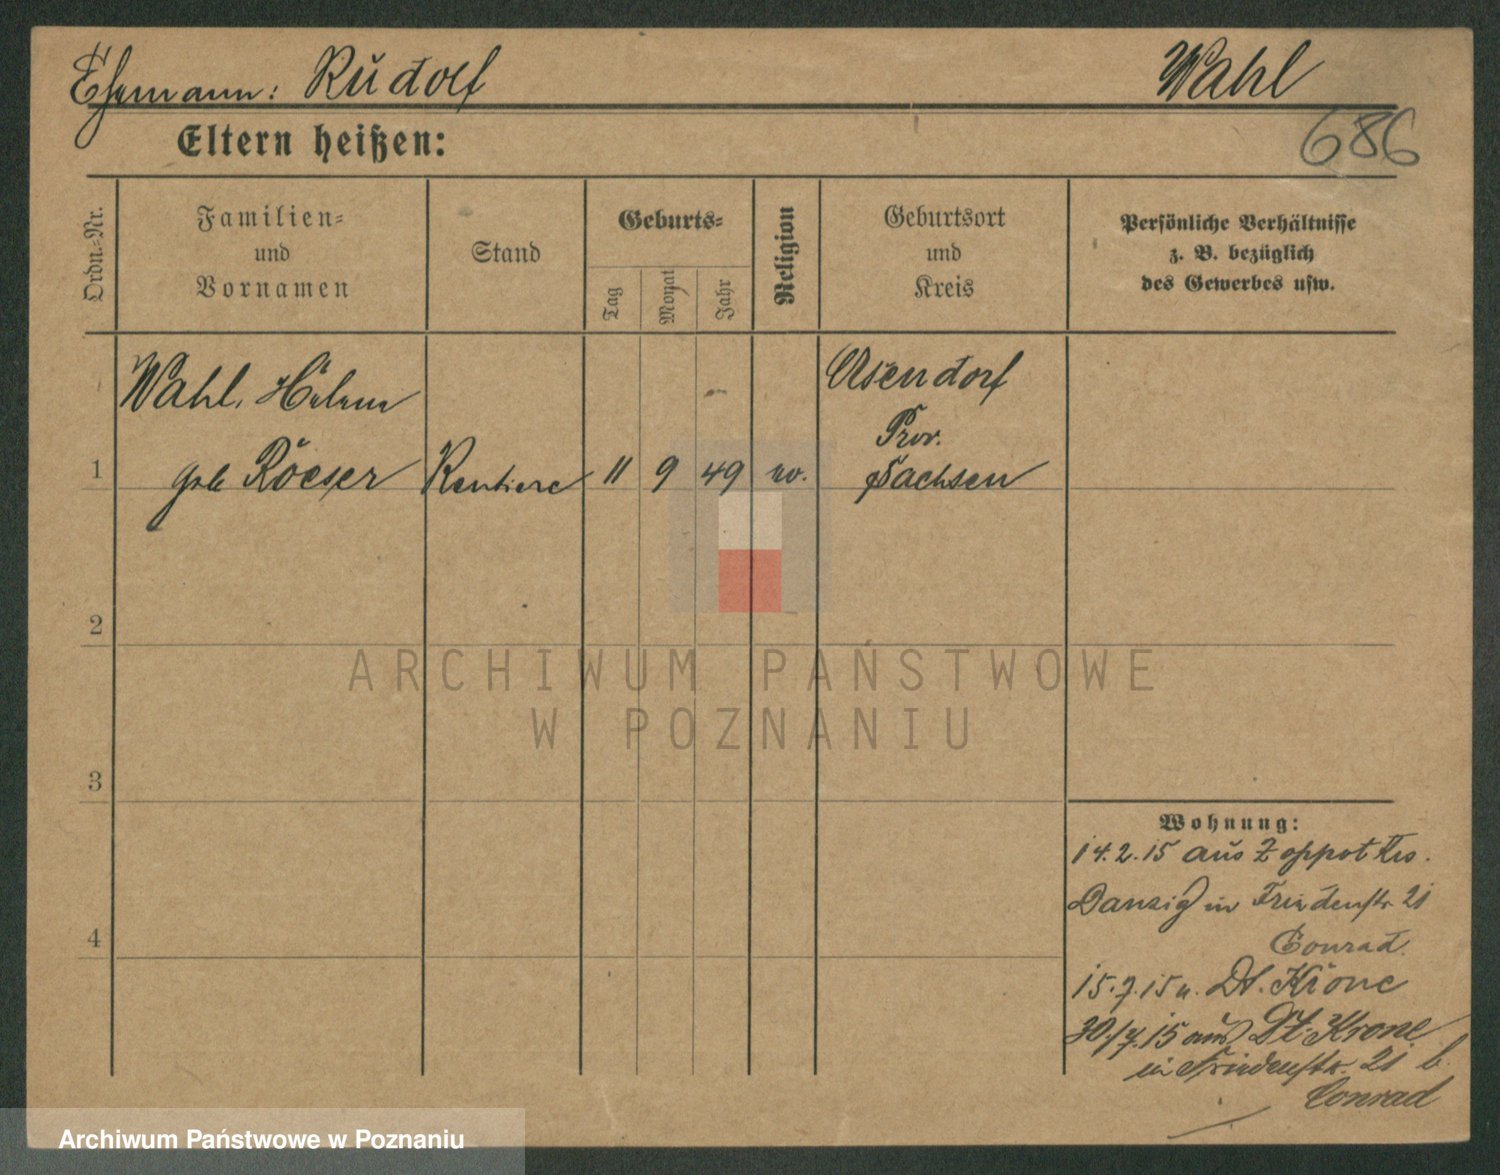 Ehemann: Rudolf Wahl
686
Eltern heißen:
Ordn.-Nr.
Familien-
und
Vornamen
Stand
Geburts-
Tag
Monat
Jahr
Religion
Geburtsort
und
Kreis
Persönliche Verhältnisse
z. B. bezüglich
des Gewerbes usw.
1
Wahl, Helene
geb Roeser
Rentiere
11
9
49
ev.
Asendorf
Prov.
Sachsen
2
3
4
Wohnung:
14.2.15 aus Zoppot Krs.
Danzig in Friedenstr 21
Conrad.
15.7.15 n. Dt. Krone
30/7.15 aus Dt. Krone
in Friedenstr. 21 b.
Conrad
ARCHIWUM PAŃSTWOWE
W POZNANIU
Archiwum Państwowe w Poznaniu